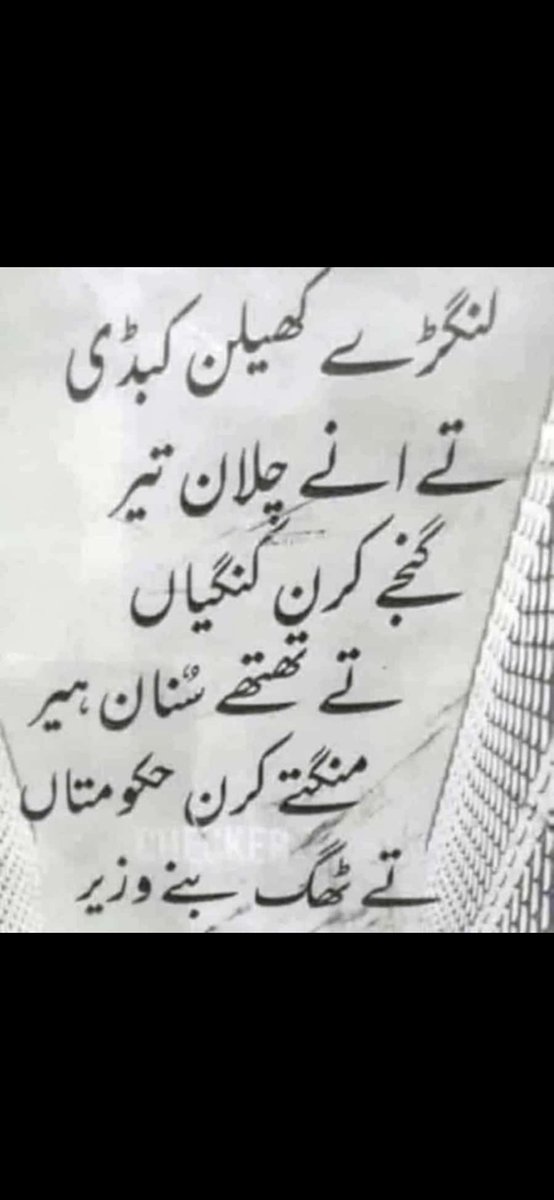 لنگڑے کھیلن کبڈی
تے انے چلان تیر
گنجے کرن کنگیاں
تے تھتھے سُنان ہیر
منگتے کرن حکومتاں
CHECKER
تے ٹھگ بنے وزیر